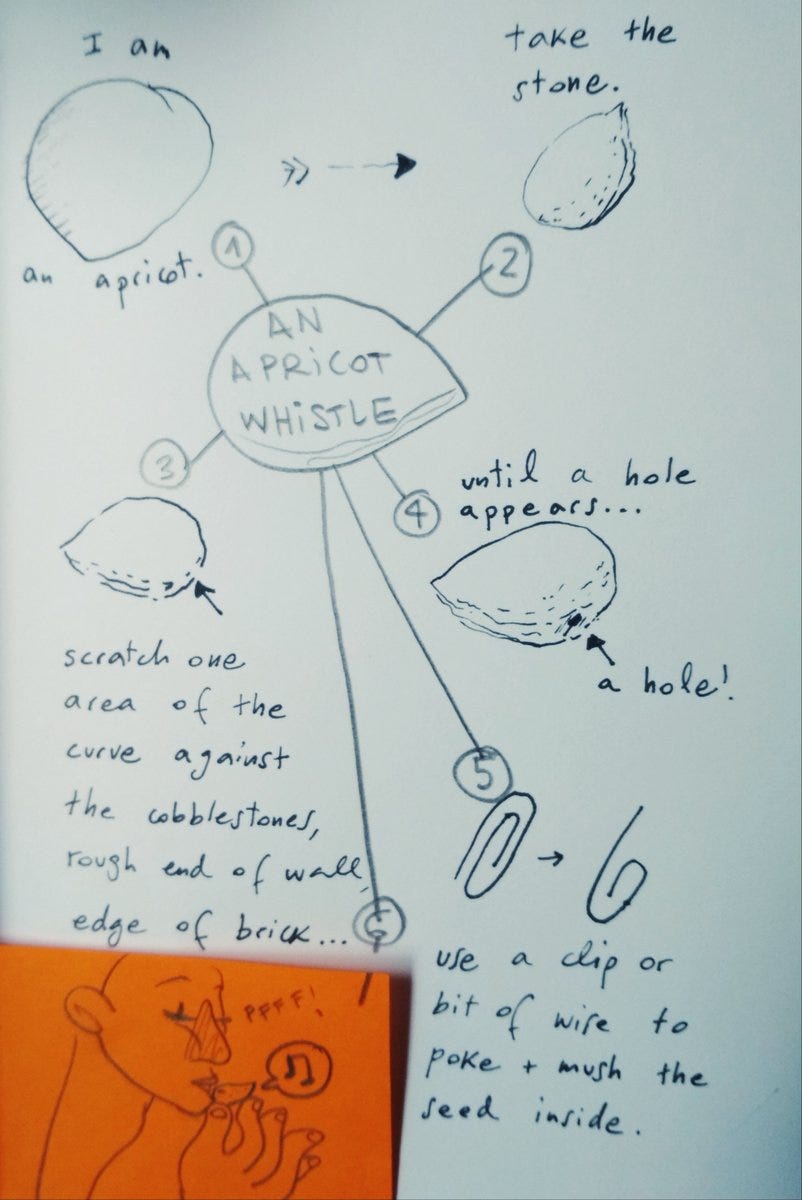 I am
an apricot.
take the
stone.
1
2
AN
APRiCOT
WHiSTLE
3
4
scratch one
area of the
curve against
the cobblestones,
rough end of wall,
edge of brick...
until a hole
appears...
a hole!
5
use a clip or
bit of wire to
poke + mush the
seed inside.
6
PFFF!